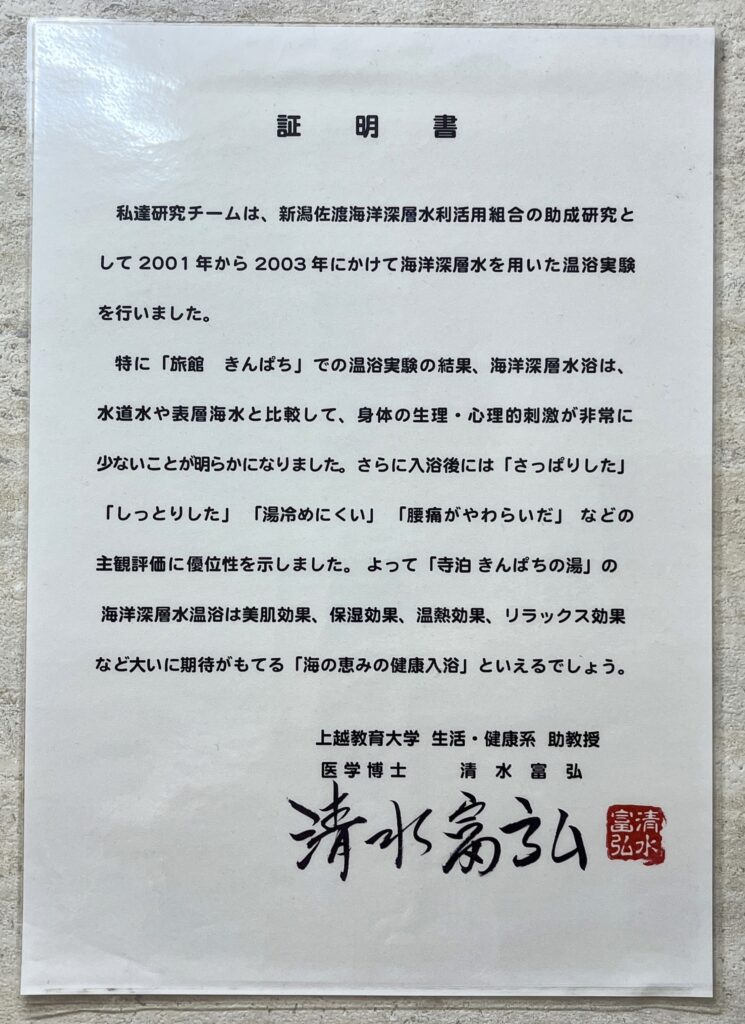 証明書
私達研究チームは、新潟佐渡海洋深層水利活用組合の助成研究と
して2001年から2003年にかけて海洋深層水を用いた温浴実験
を行いました。
特に「旅館　きんぱち」での温浴実験の結果、海洋深層水浴は、
水道水や表層海水と比較して、身体の生理・心理的刺激が非常に
少ないことが明らかになりました。さらに入浴後には「さっぱりした」
「しっとりした」「湯冷めにくい」「腰痛がやわらいだ」などの
主観評価に優位性を示しました。よって「寺泊 きんぱちの湯」の
海洋深層水温浴は美肌効果、保湿効果、温熱効果、リラックス効果
など大いに期待がもてる「海の恵みの健康入浴」といえるでしょう。
上越教育大学 生活・健康系 助教授
医学博士　清水富弘
清水富弘
清水富弘